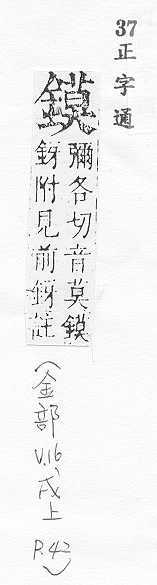 37 正字通
鏌
彌各切音莫鏌
釾附見前釾註
(金部
V.16、戌上
P.42)